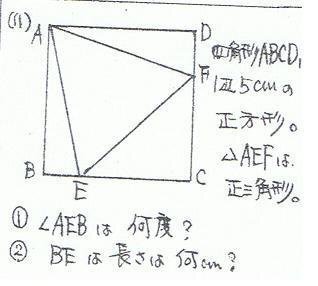 (11)
A
D
四角形ABCD,
F
1辺5cmの
正方形。
△AEFは
正三角形。
B
E
C
① ∠AEBは 何度?
② BEは長さは何cm?